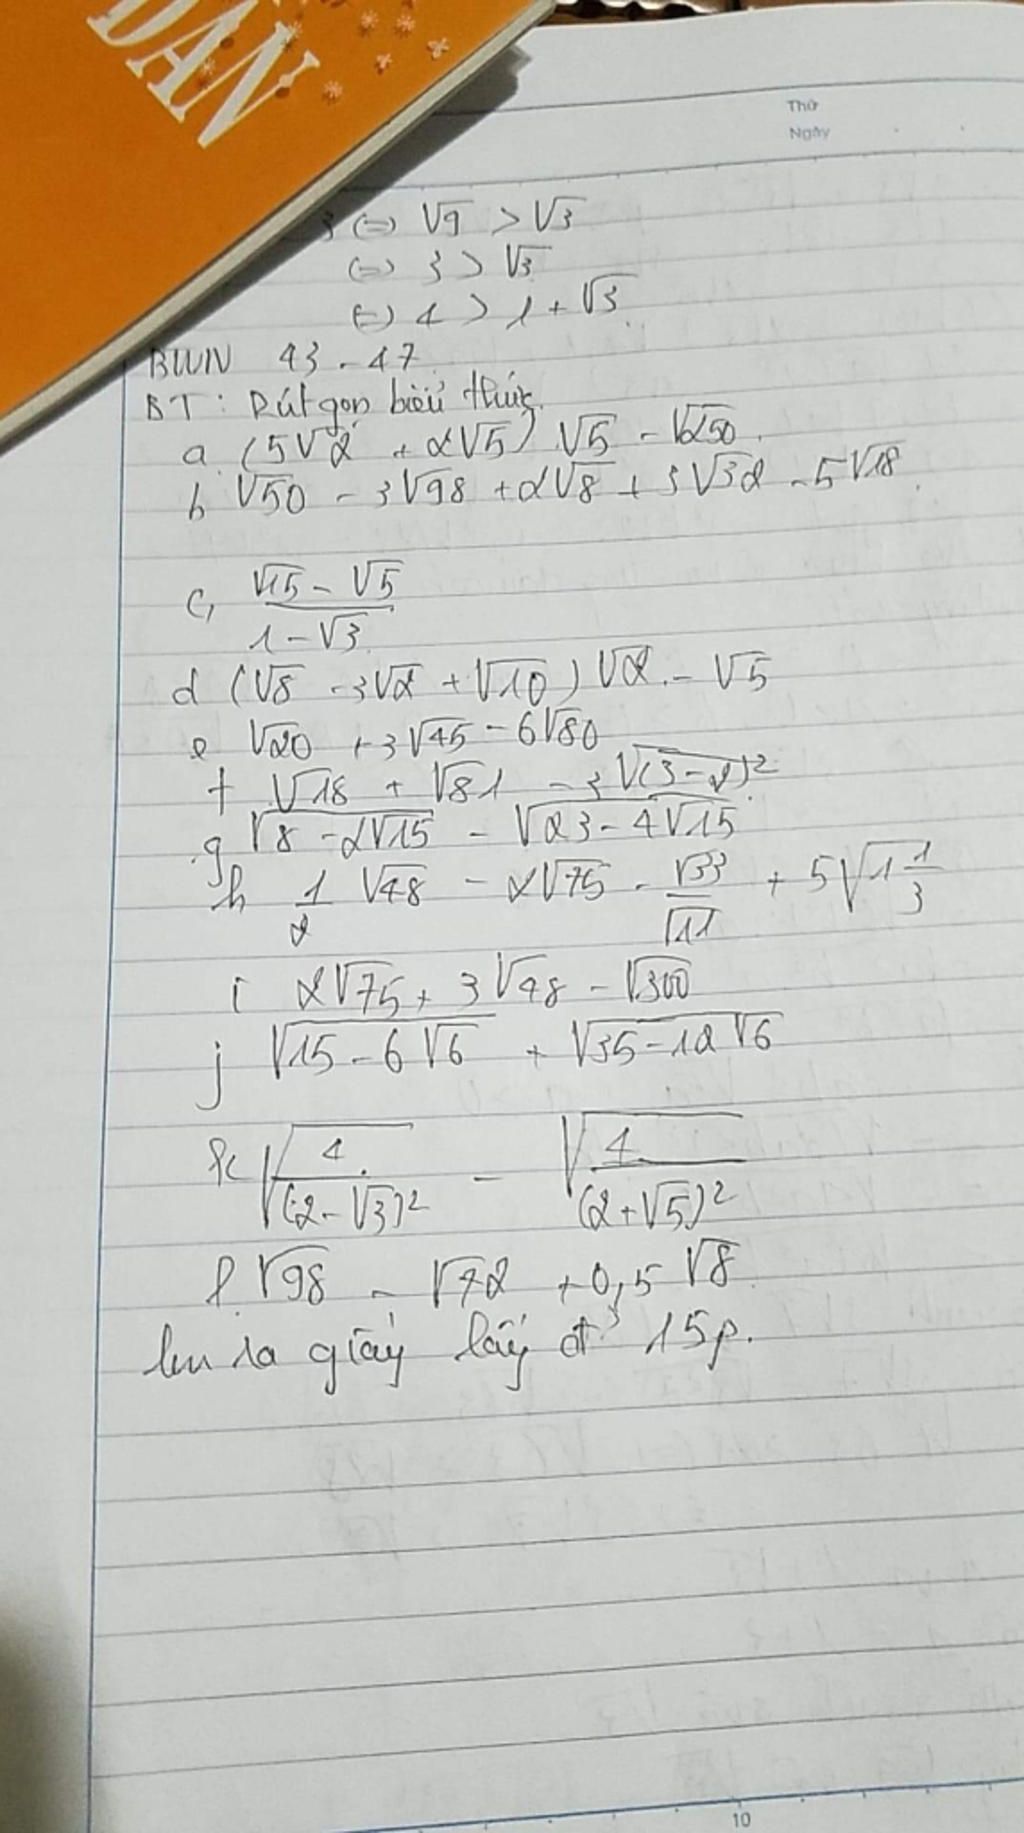 DÂN
Thứ
Ngày
3 (=) √9 > √3
(=) 3 > √3
(=) 4 > 1 + √3
BWN 43 - 47
BT : Rút gọn biểu thức
a. (5√2 + 2√5) √5 - √250
b √50 - 3√98 + 2√8 + 3√32 - 5√18
c, (√15 - √5)/(1 - √3)
d (√8 - 3√2 + √10) √2 - √5
e √20 + 3√45 - 6√80
f √18 + √81 - 3√(3-2)²
g √(8 - 2√15) - √(23 - 4√15)
h 1/2 √48 - 2√75 - √33/√11 + 5√(1 1/3)
i 2√75 + 3√48 - √300
j √(15 - 6√6) + √(35 - 12√6)
k √(4/(2-√3)²) - √(4/(2+√5)²)
l. √98 - √72 + 0,5 √8
làm ra giấy lấy đ 15p.
10